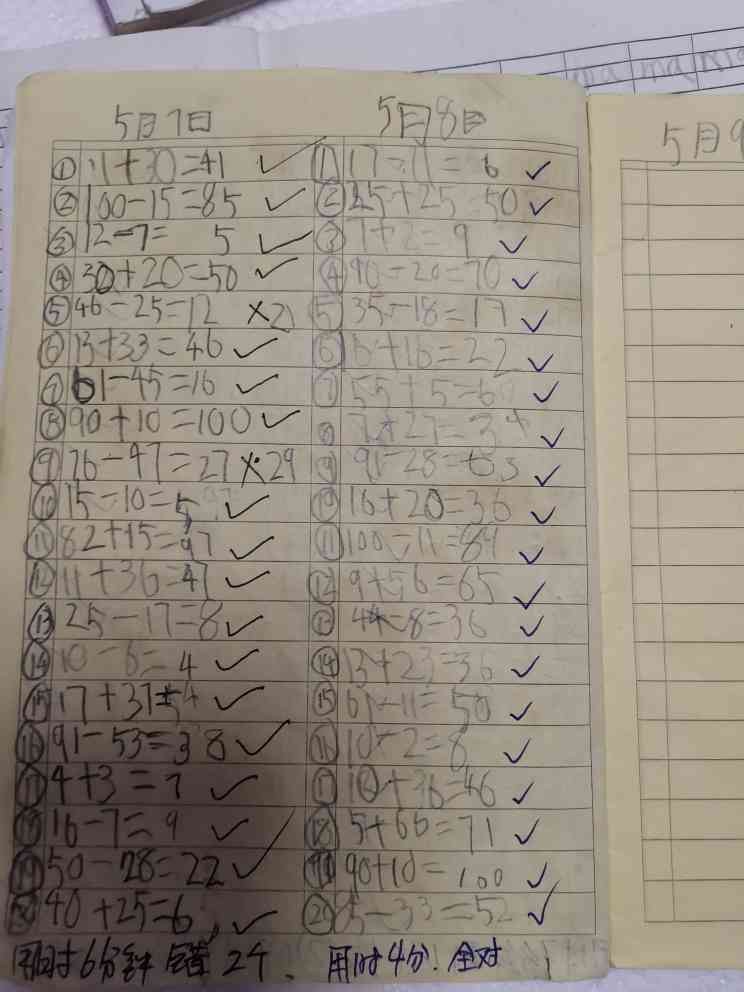 5月7日
① 11+30=41 ✓
② 100-15=85 ✓
③ 12-7= 5 ✓
④ 30+20=50 ✓
⑤ 46-25=12 ×21
⑥ 13+33=46 ✓
⑦ 61-45=16 ✓
⑧ 90+10=100 ✓
⑨ 76-47=27 ×29
⑩ 15-10=5 ✓
⑪ 82+15=97 ✓
⑫ 11+36=47 ✓
⑬ 25-17=8 ✓
⑭ 10-6=4 ✓
⑮ 17+37=54 ✓
⑯ 91-53=38 ✓
⑰ 4+3=7 ✓
⑱ 16-7=9 ✓
⑲ 50-28=22 ✓
⑳ 40+25=6 ✓
用时6分钟 错2个.
5月8日
① 17-11=6 ✓
② 25+25=50 ✓
③ 7+2=9 ✓
④ 90-20=70 ✓
⑤ 35-18=17 ✓
⑥ 6+16=22 ✓
⑦ 55+5=60 ✓
⑧ 7+27=34 ✓
⑨ 91-28=63 ✓
⑩ 16+20=36 ✓
⑪ 100-11=89 ✓
⑫ 9+56=65 ✓
⑬ 44-8=36 ✓
⑭ 13+23=36 ✓
⑮ 61-11=50 ✓
⑯ 10-2=8 ✓
⑰ 10+36=46 ✓
⑱ 5+66=71 ✓
⑲ 90+10=100 ✓
⑳ 85-33=52 ✓
用时4分! 全对
5月9